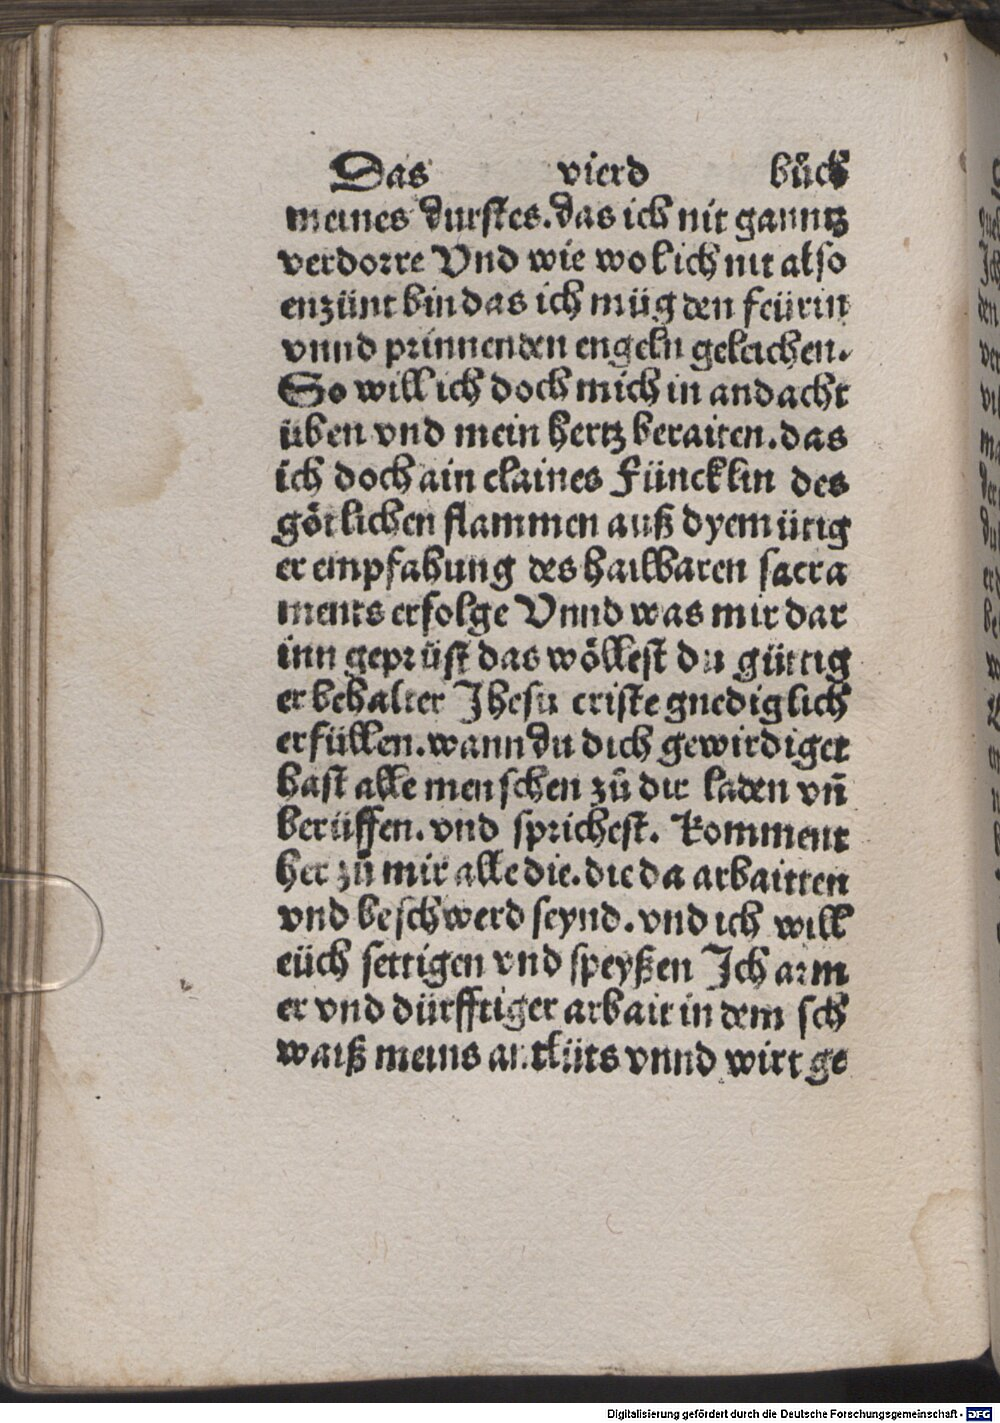 Das vierd bůch
meines durstes.das ich nit ganntz
verdorre Vnd wie wol ich nit also
enzünt bin das ich müg den feürin
vnnd prinnenden engeln geleichen.
So will ich doch mich in andacht
üben vnd mein hertz beraiten.das
ich doch ain claines Füncklin des
götlichen flammen auß dyemütig
er empfahung des hailbaren sacra
ments erfolge Vnnd was mir dar
inn geprüst das wöllest du güttig
er behalter Jhesu criste gnediglich
erfüllen.wann du dich gewirdiget
hast alle menschen zů dir laden vn̄
berüffen.vnd sprichest. Komment
her zů mir alle die.die da arbaitten
vnd beschwerd seynd.vnd ich will
eüch settigen vnd speyßen Jch arm
er vnd dürfftiger arbait in dem sch
waiß meins antlüts vnnd wirt ge
Digitalisierung gefördert durch die Deutsche Forschungsgemeinschaft - DFG